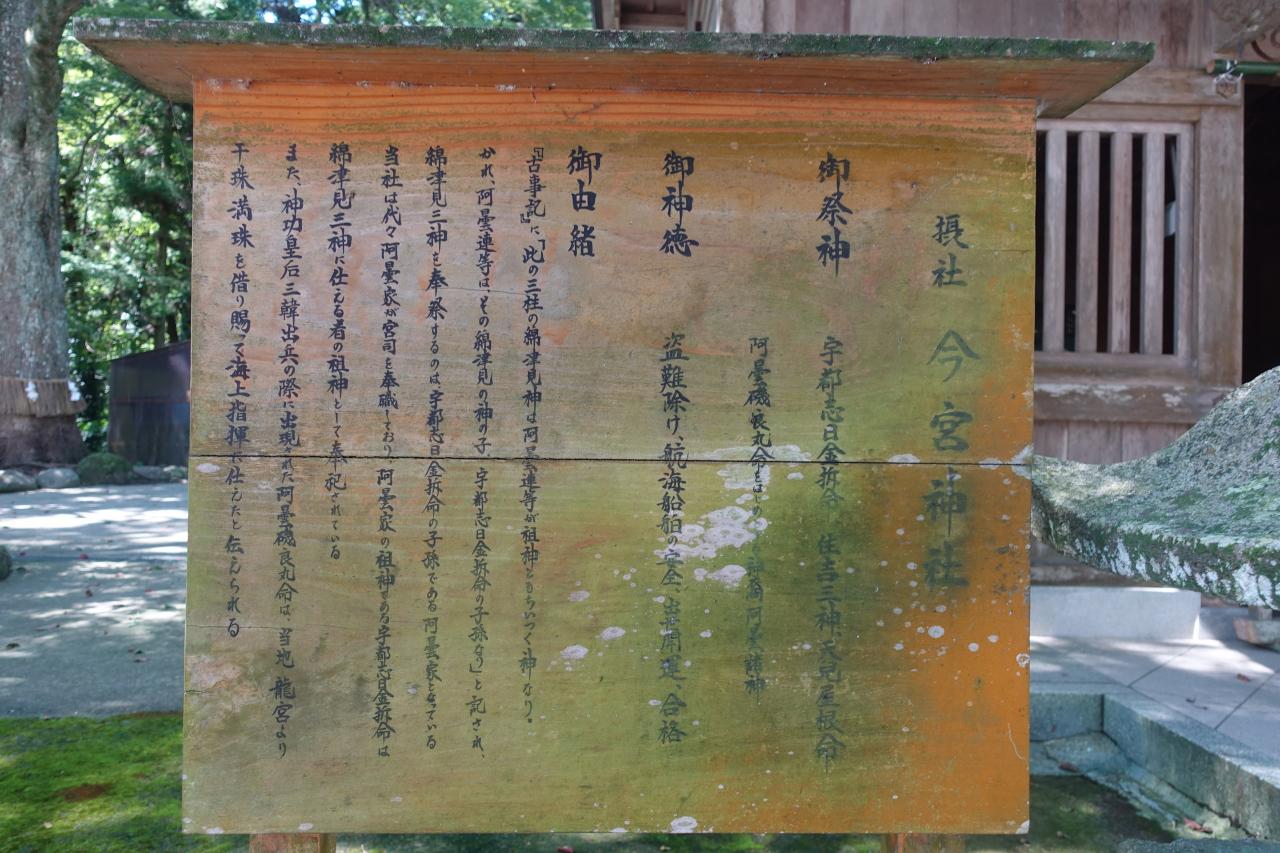 摂社 今宮神社
御祭神 宇都志日金折命 住吉三神、天児屋根命
阿曇磯良丸命をはじめとする神孫阿曇諸神
御神徳 盗難除け、航海船舶の安全、出世開運、合格
御由緒
『古事記』に、「此の三柱の綿津見神は阿曇連等が祖神ともちいつく神なり。
かれ、阿曇連等は、その綿津見の神の子、宇都志日金折命の子孫なり」と記され、
綿津見三神を奉祭するのは宇都志日金折命の子孫である阿曇家となっている
当社は代々阿曇家が宮司を奉職しており、阿曇家の祖神である宇都志日金折命は
綿津見三神に仕える者の祖神として奉祀されている
また、神功皇后三韓出兵の際に出現された阿曇磯良丸命は、当地 龍宮より
干珠満珠を借り賜って海上指揮に仕えたと伝えられる